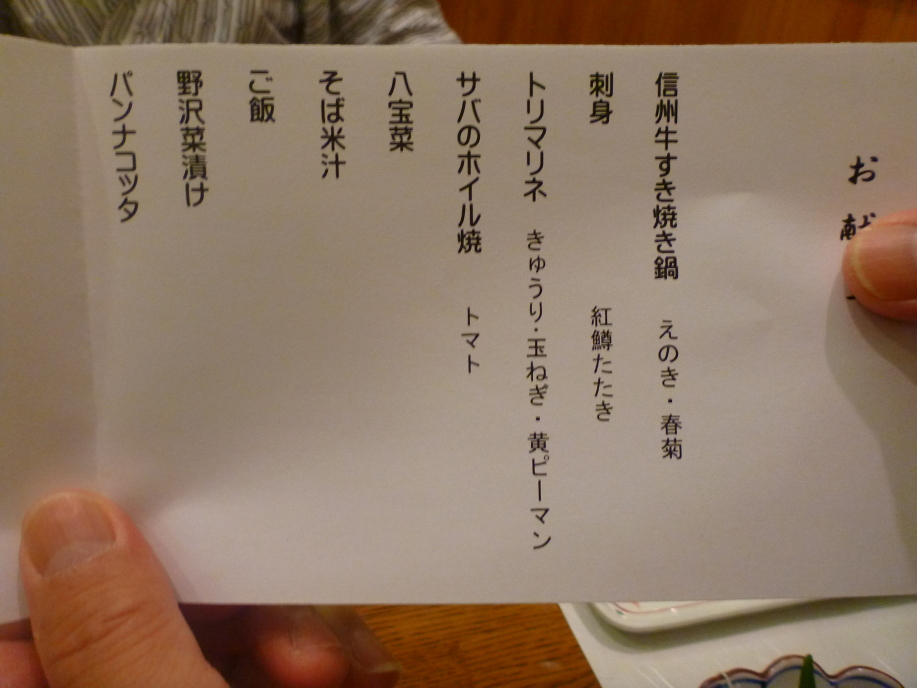 お献
信州牛すき焼き鍋 えのき・春菊
刺身 紅鱒たたき
トリマリネ きゅうり・玉ねぎ・黄ピーマン
サバのホイル焼 トマト
八宝菜
そば米汁
ご飯
野沢菜漬け
パンナコッタ